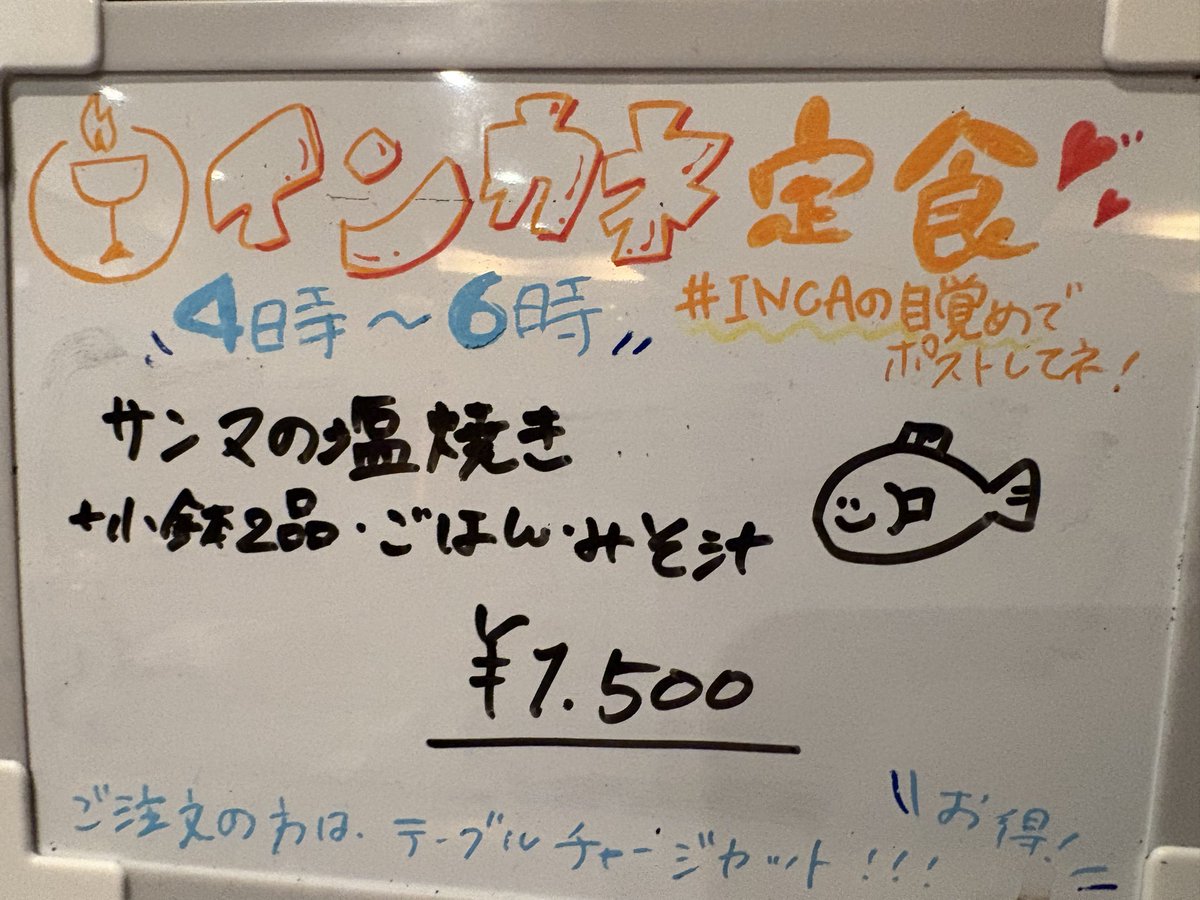 インカネ定食
4時～6時
#INCAの目覚めで
ポストしてネ!
サンマの塩焼き
+小鉢2品・ごはん・みそ汁
¥1.500
ご注文の方は、テーブルチャージカット!!!
お得!